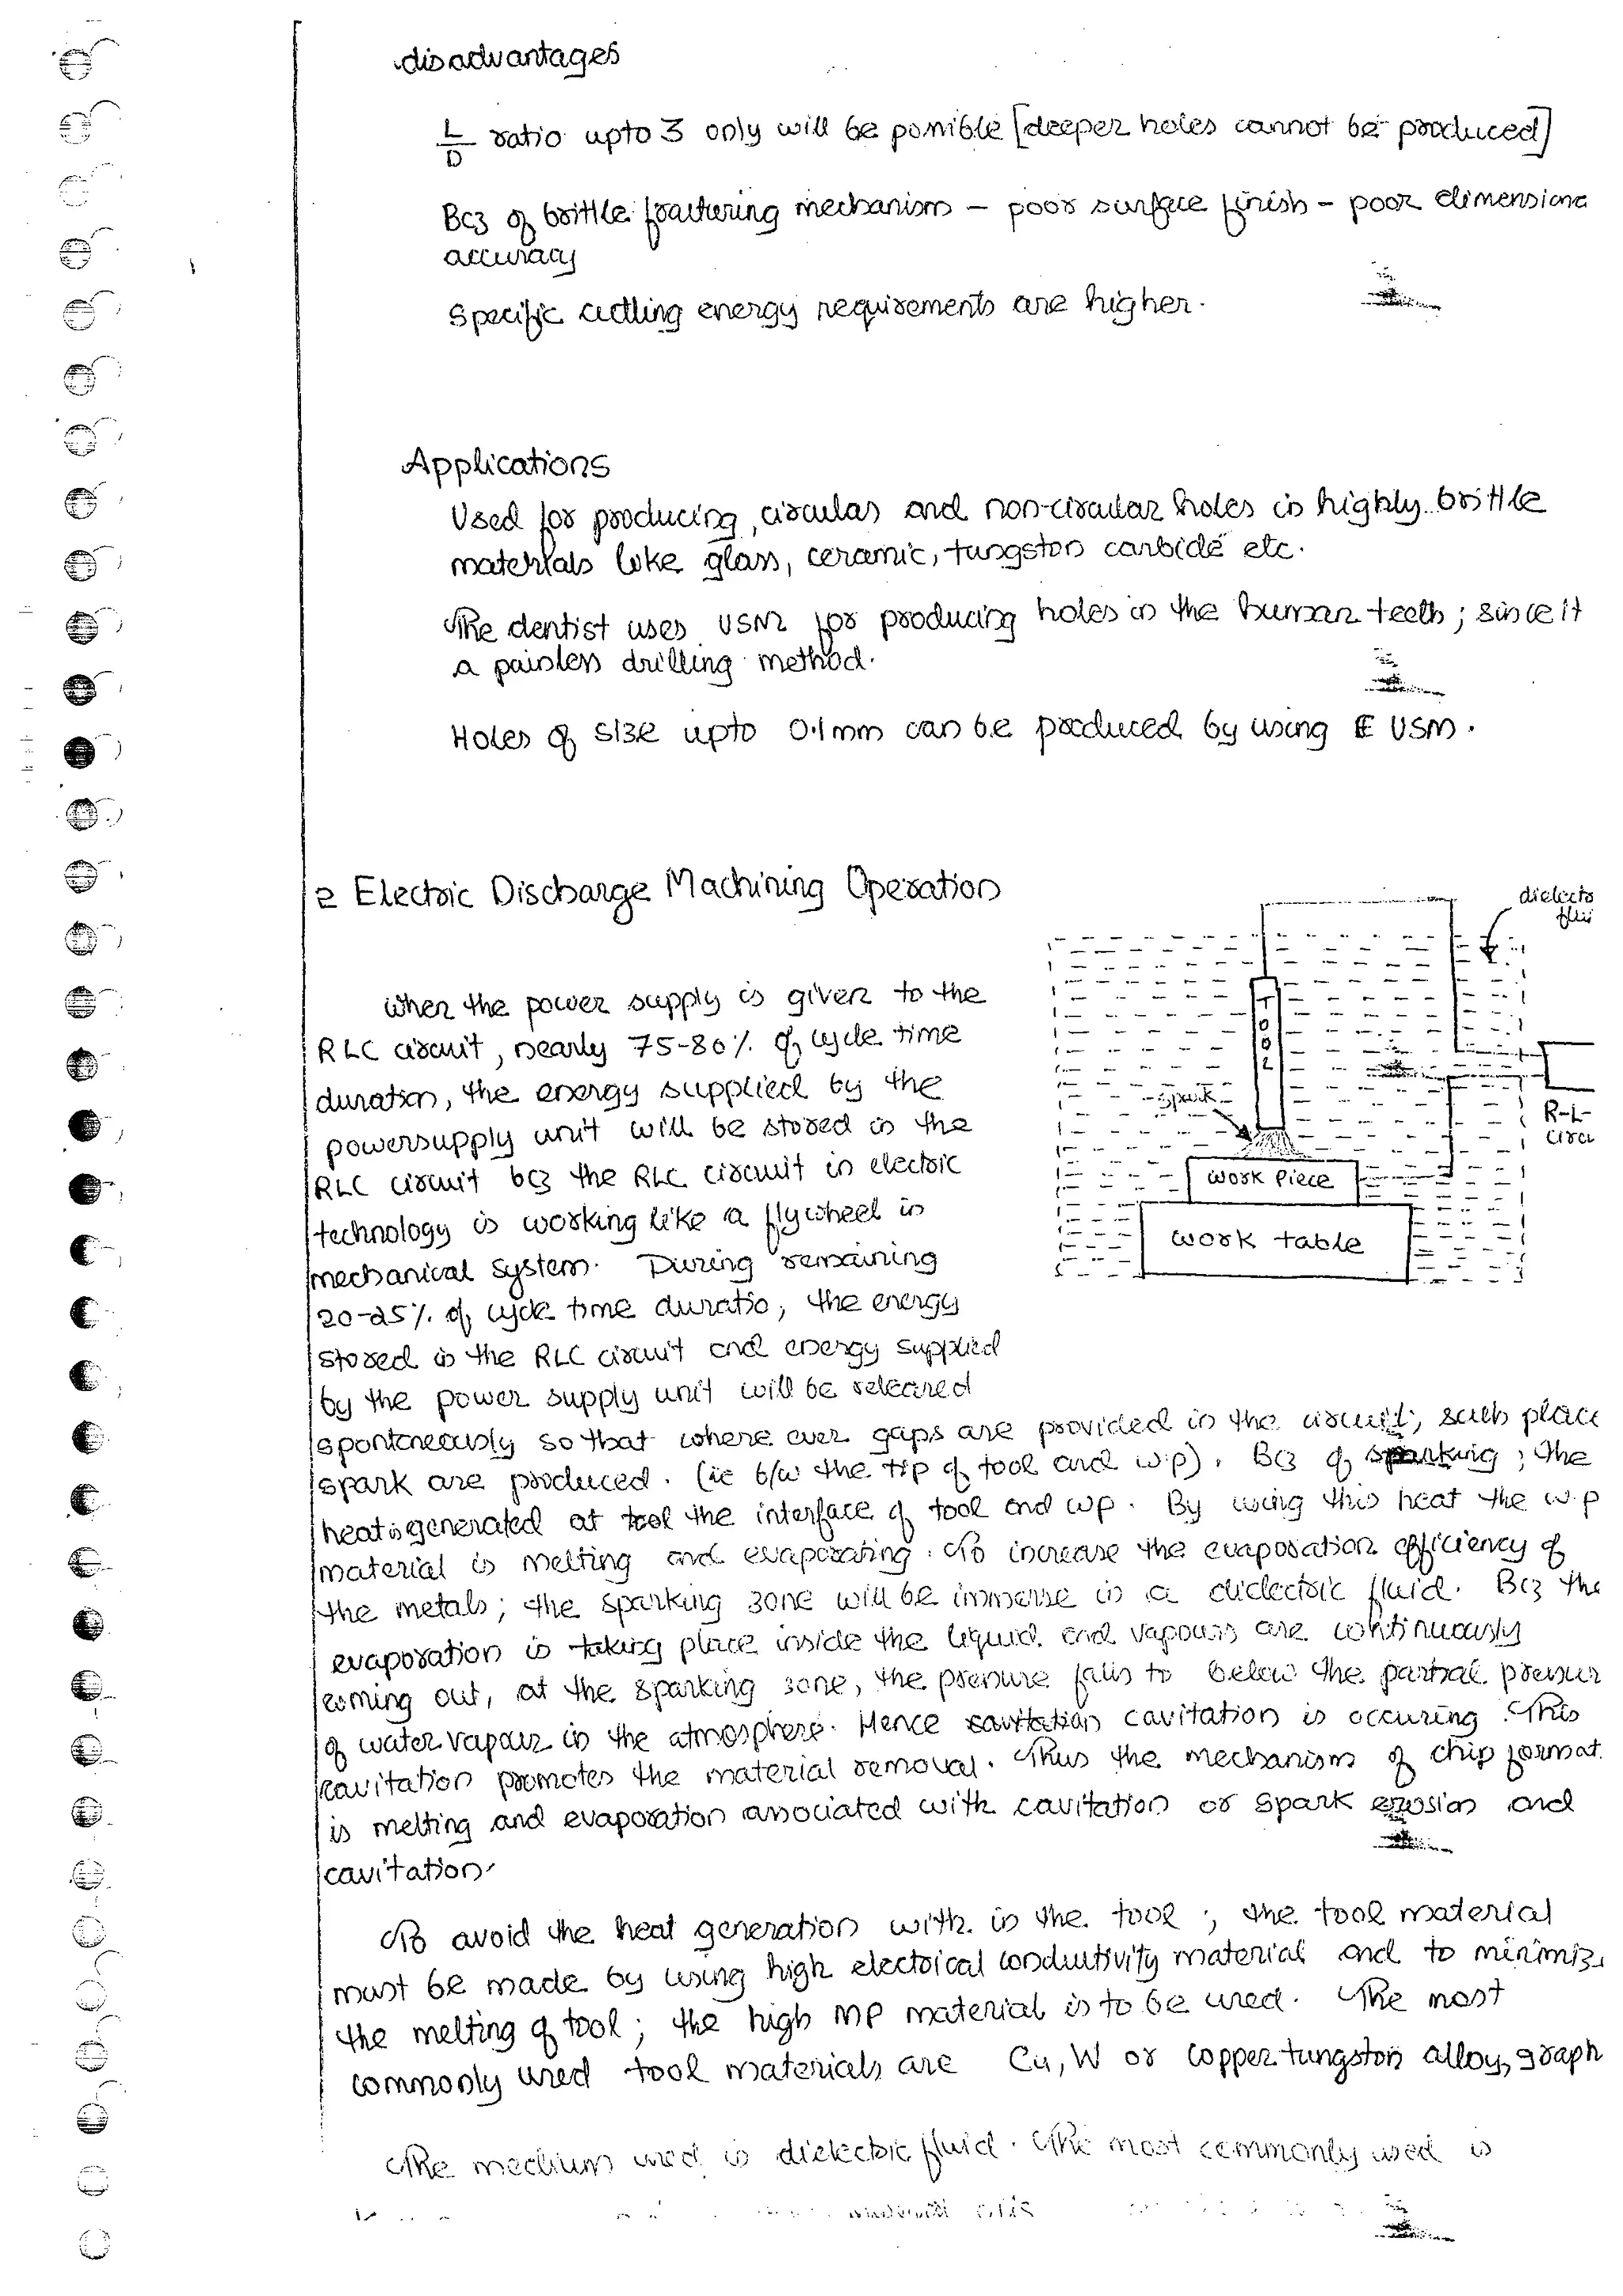 disadvantages
L/D ratio upto 3 only will be possible [deeper holes cannot be produced]
Bcz of brittle fracturing mechanism – poor surface finish – poor dimensiona
accuracy
Specific cutting energy requirements are higher.
Applications
Used for producing, circular and non-circular holes in highly brittle
materials like glass, ceramic, tungston carbide etc.
The dentist uses USM for producing holes in the human teeth; since it
a painless drilling method.
Holes of size upto 0.1mm can be produced by using E USM.
2 Electric Discharge Machining Operation
dielectr
flui
TOOL
spark
Work Piece
work table
R-L-
circu
When the power supply is given to the
RLC circuit, nearly 75-80% of cycle time
duration, the energy supplied by the
powersupply unit will be stored in the
RLC circuit bcz the RLC circuit in electric
technology is working like a flywheel in
mechanical system. During remaining
20-25% of cycle time duratio, the energy
stored in the RLC circuit and energy supplied
by the power supply unit will be released
spontaneously so that where ever gaps are provided in the circuit, such place
spark are produced. (ie b/w the tip of tool and w.p). Bcz of sparking; the
heat is generated at tool the interface of tool and wp. By using this heat the w.p
material is melting and evaporating. To increase the evaporation efficiency of
the metals; the sparking zone will be immerse in a dielectric fluid. Bcz the
evaporation is taking place inside the liquid and vapours are continuously
coming out, at the sparking zone, the pressure falls to below the partial pressur
of water vapour in the atmosphere. Hence cavitation is occuring. This
cavitation promotes the material removal. Thus the mechanism of chip format
is melting and evaporation associated with cavitation or spark erosion and
cavitation.
To avoid the heat generation with in the tool; the tool material
must be made by using high electrical conductivity material and to minimiz
the melting of tool; the high MP material is to be used. The most
commonly used tool materials are Cu, W or copper tungston alloy, graph
The medium used is dielectric fluid. The most commonly used is